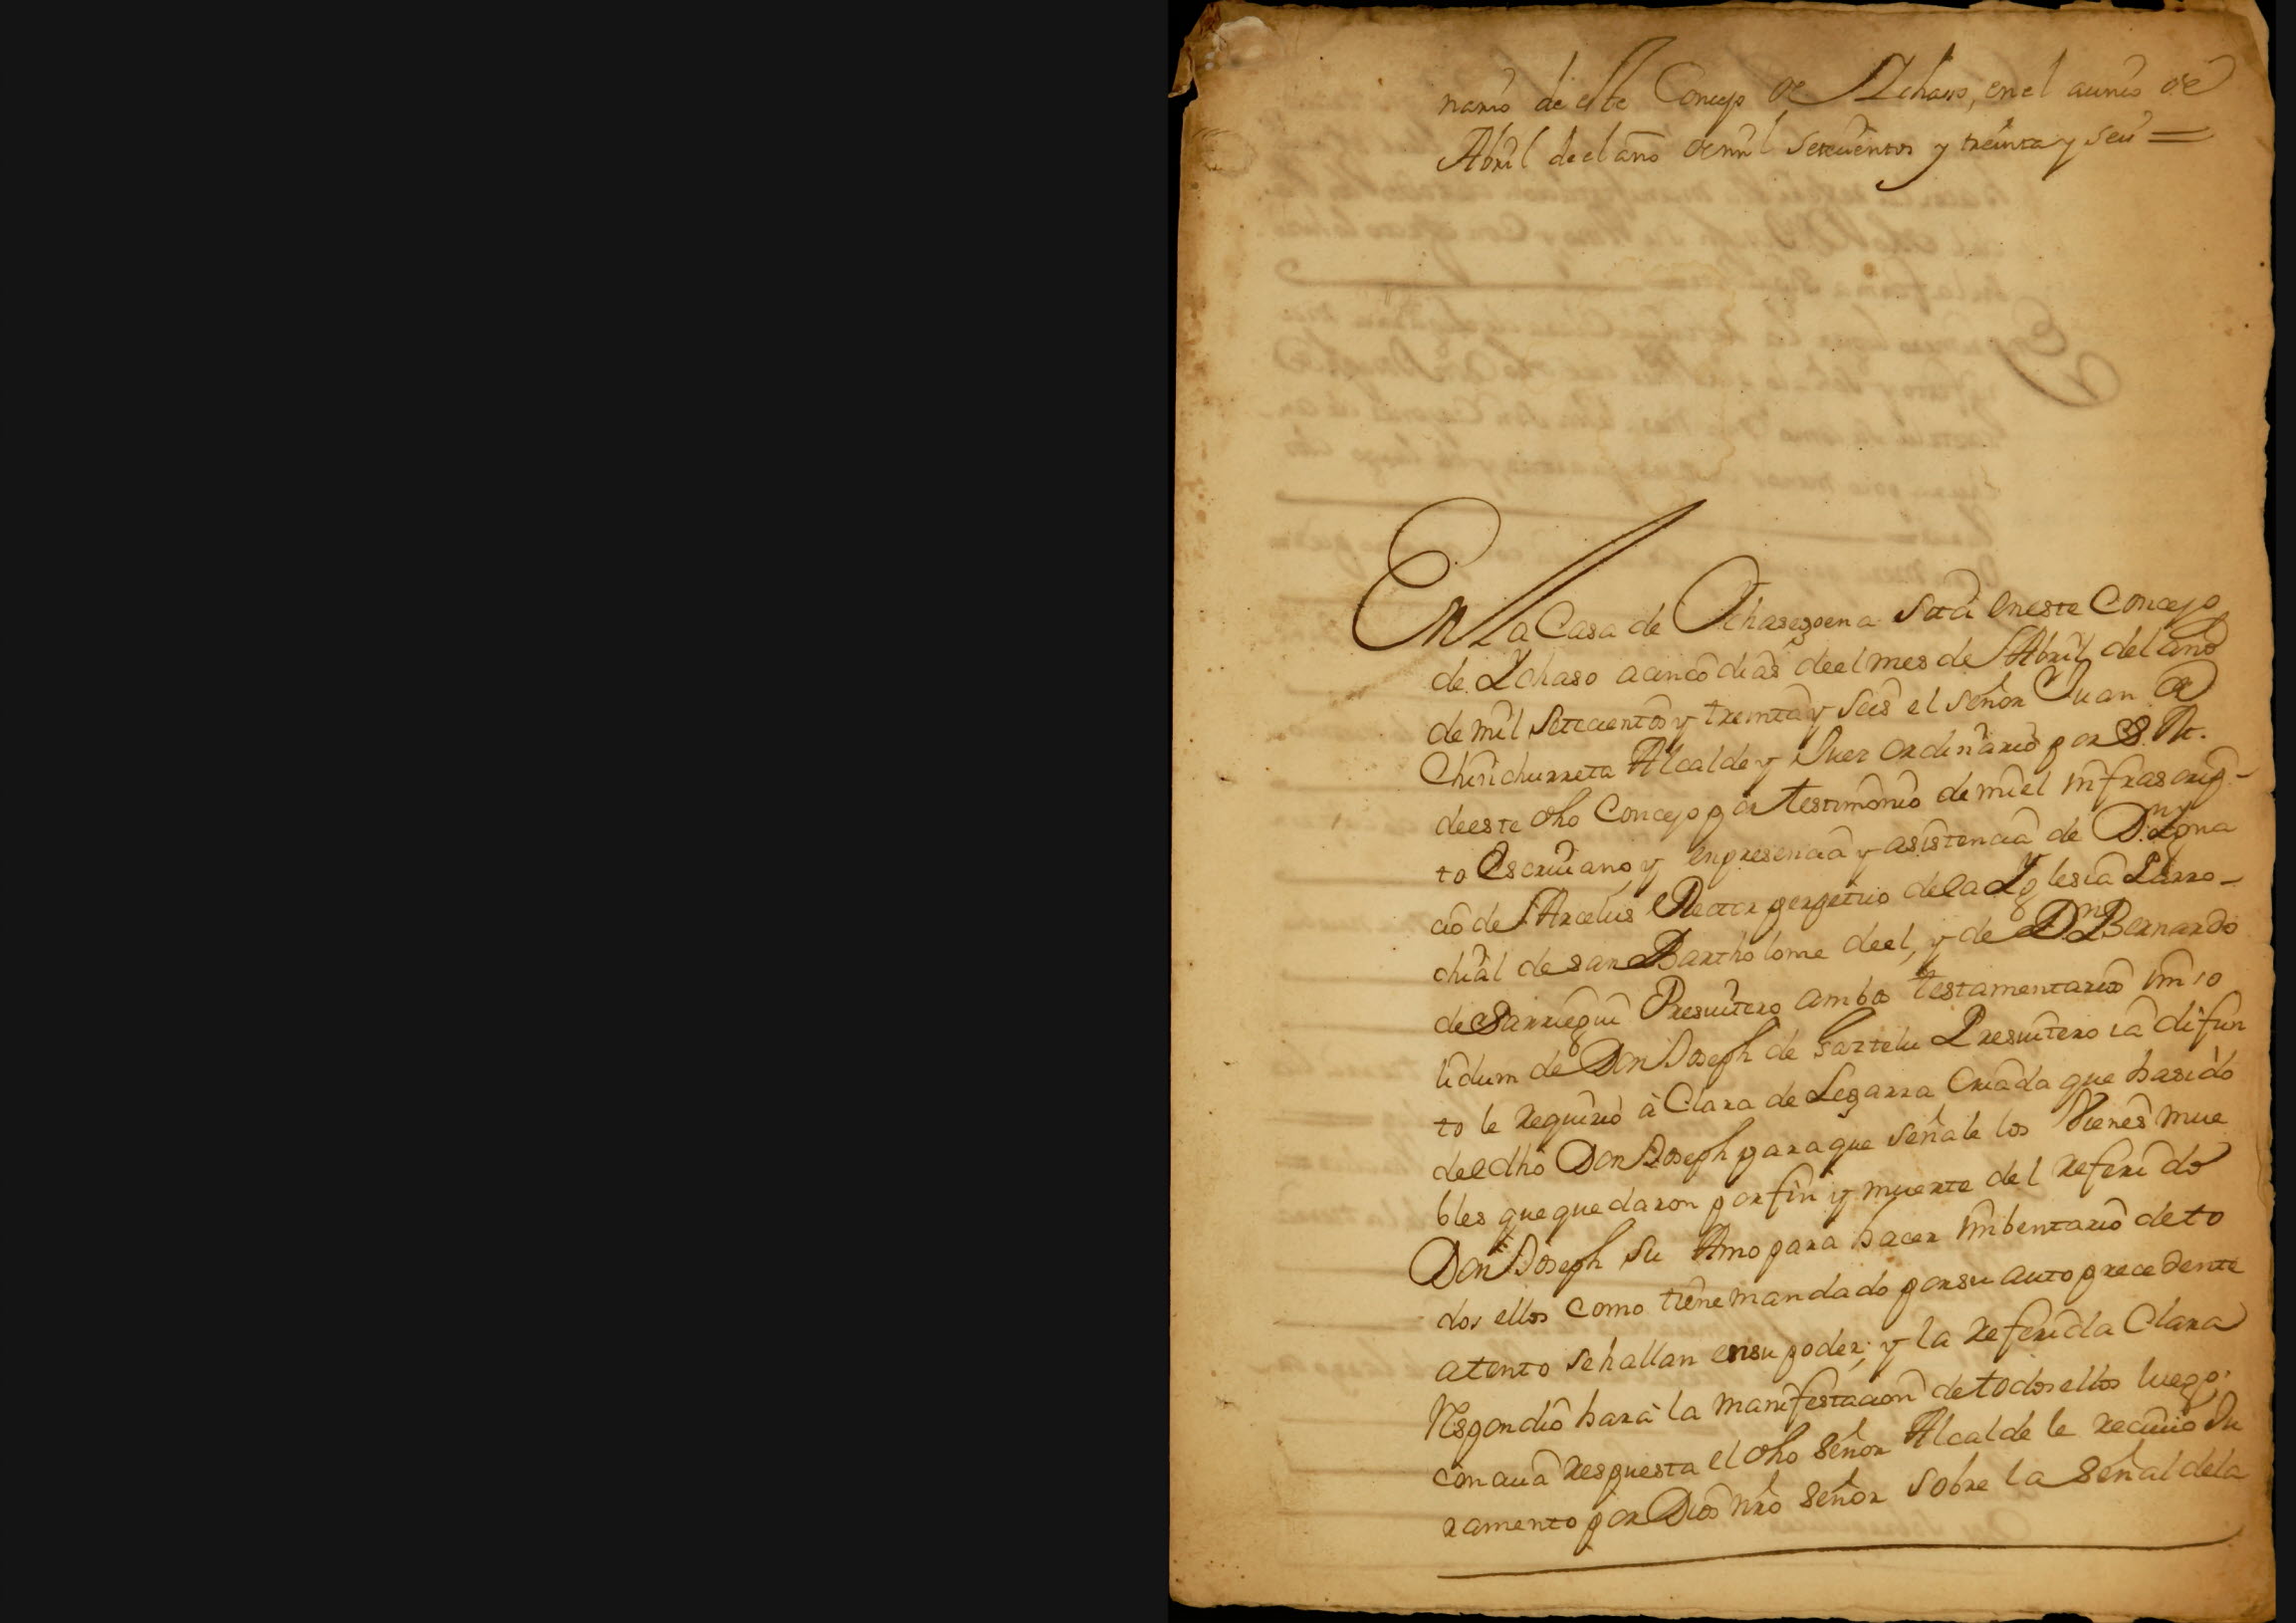 nario de este Concejo de Ichaso, en el a cinco de
Abril de el año de mil setecientos y treinta y seis =
En la Casa de Ichasegoena sita en este Concejo
de Ychaso a cinco dias de el mes de Abril del año
de mil setecientos y treinta y seis el señor Juan de
Chinchurreta Alcalde y Juez ordinario por S. M.
de este dho Concejo por testimonio de mi el infrascrip-
to Escriuano, y en presencia y asistencia de Dn. Ygna
cio de Arcelus Rector perpetuo de la Yglesia Parro-
chial de san Bartholome de el, y de Dn. Bernardo
de Sarriegui Presuitero ambos testamentarios in so
lidum de Don Joseph de Gaztelu Presuitero ia difun
to le requirio à Clara de Legarra Criada que ha sido
del dho Don Joseph para que señale los Vienes mue
bles que quedaron por fin y muerte del referido
Don Joseph su Amo para hacer imbentario de to
dos ellos como tiene mandado por su auto precedente
atento se hallan en su poder; y la referida Clara
Respondio hará la manifestacion de todos ellos luego;
con cuia respuesta el dho señor Alcalde le reciuio Ju
ramento por Dios nrō señor sobre la señal de la